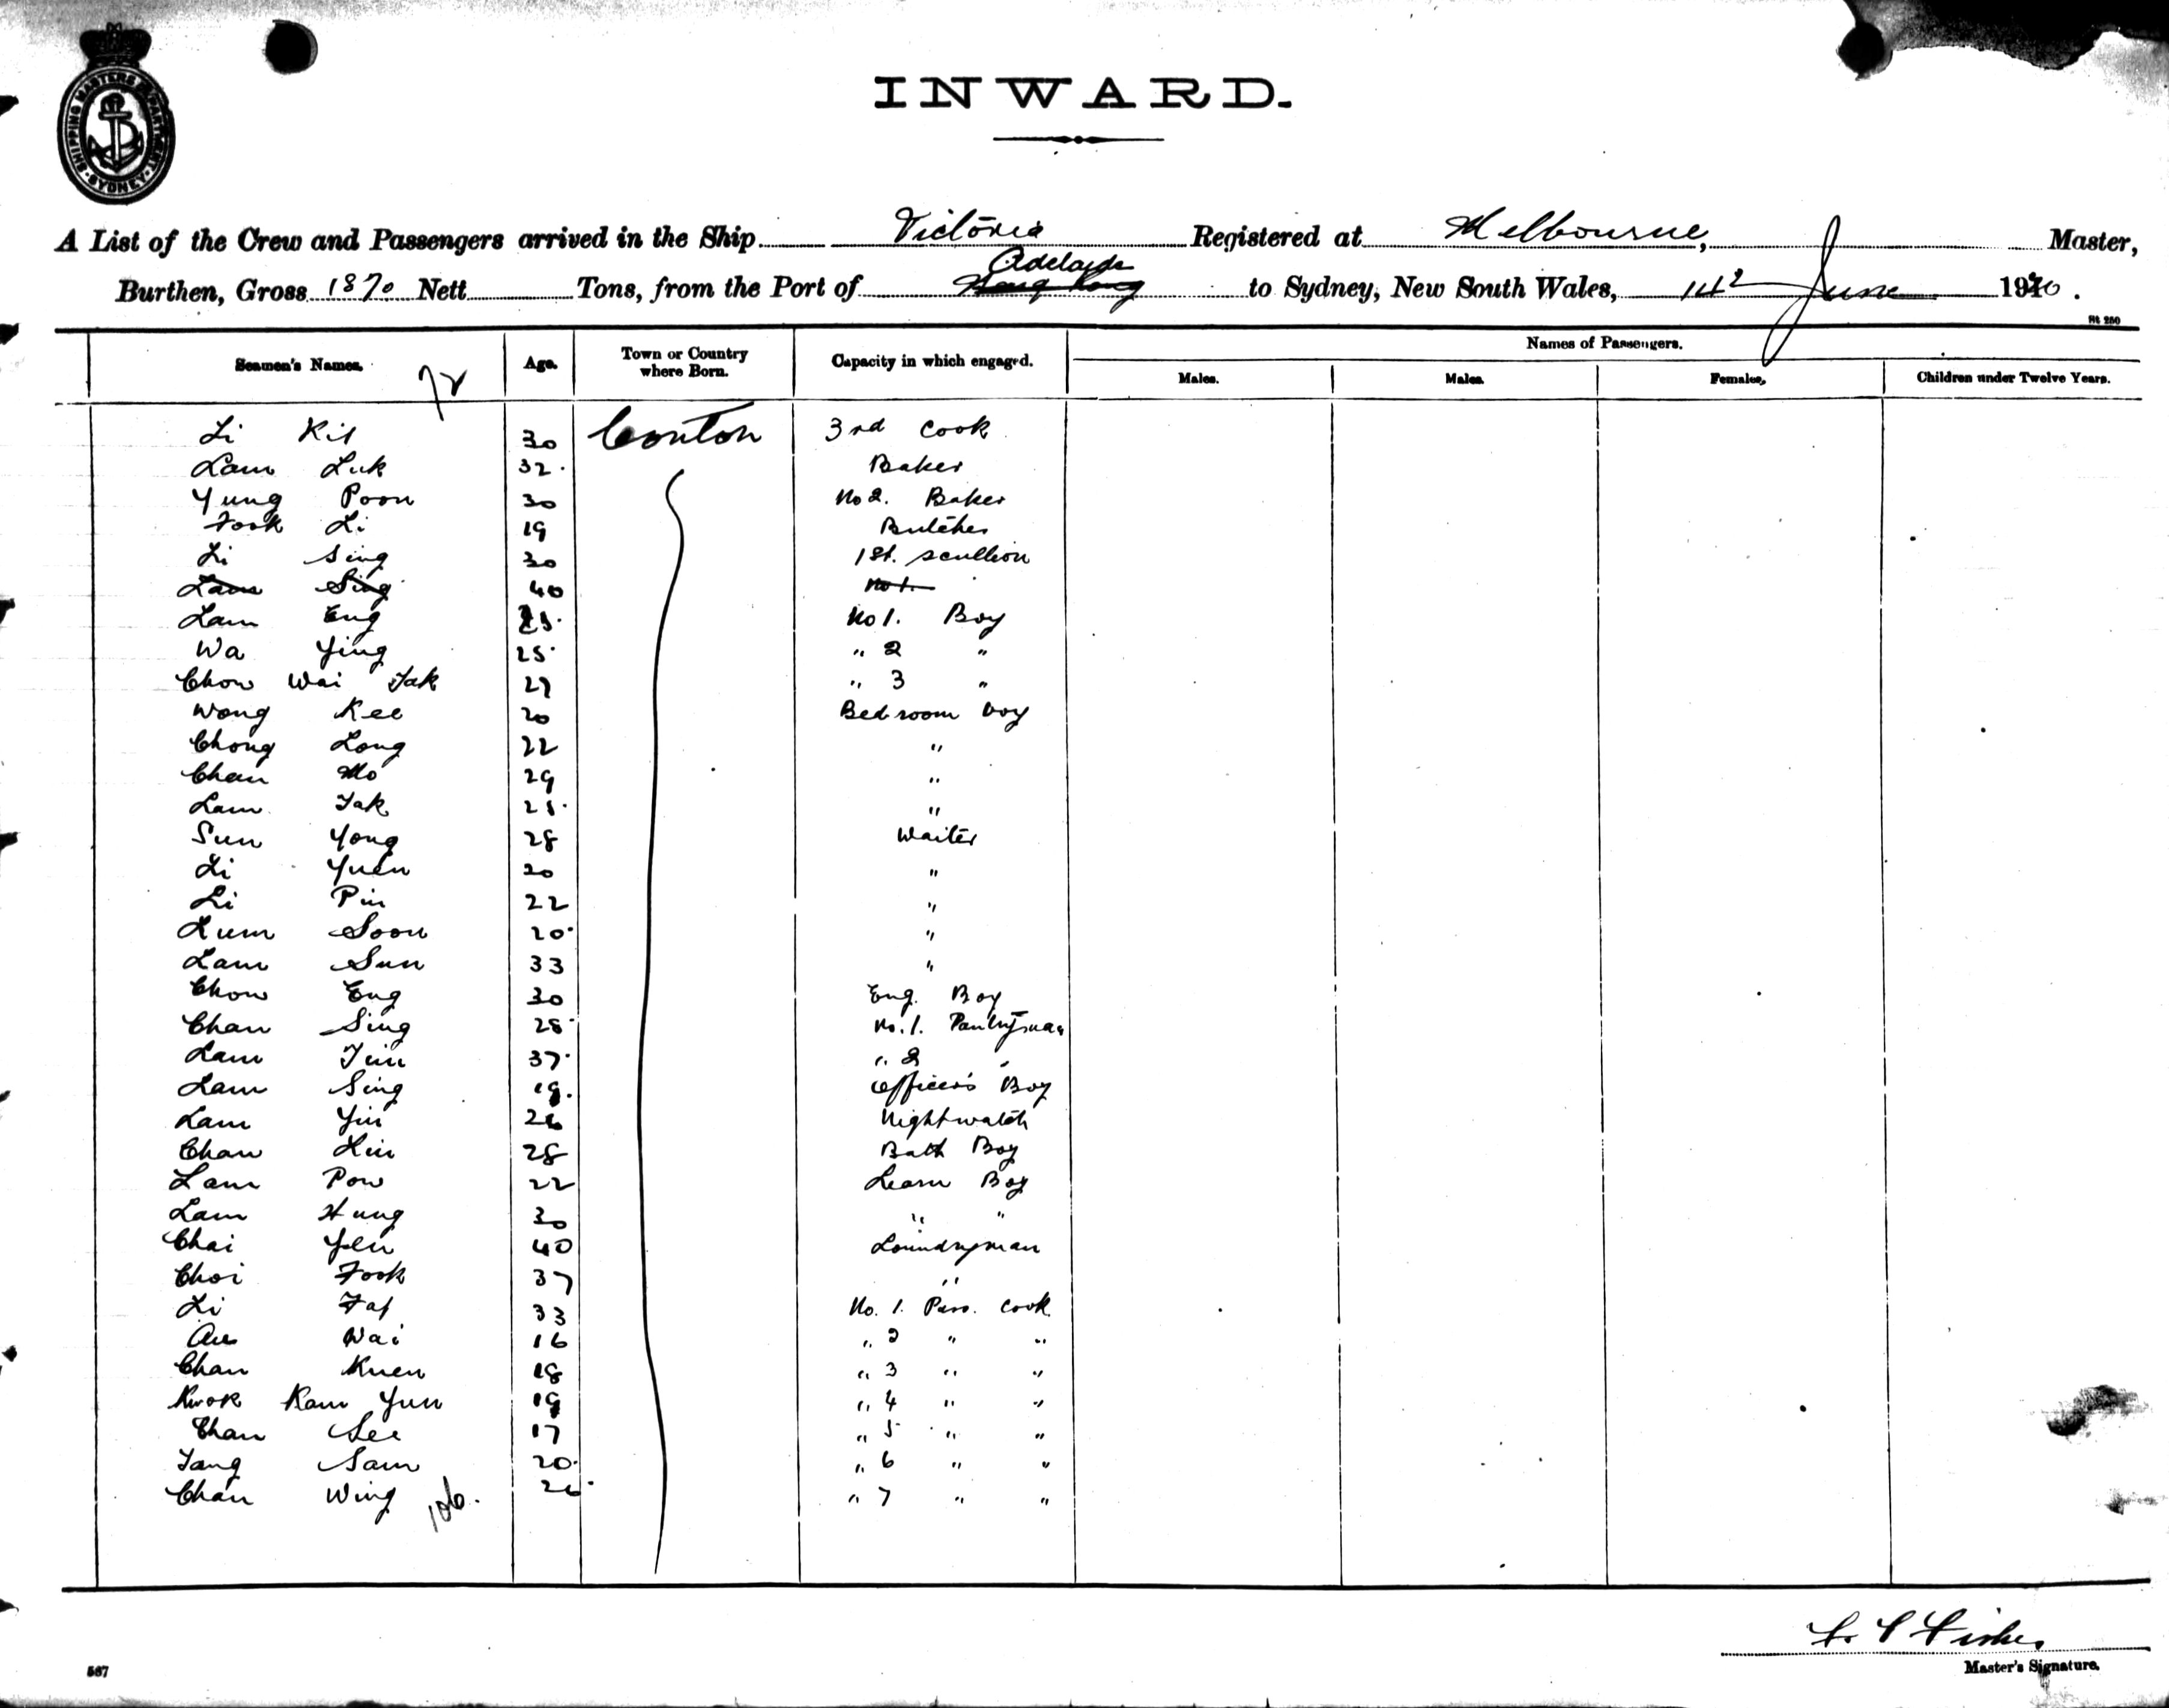 SHIPPING MASTERS DEPARTMENT
SYDNEY
INWARD.
A List of the Crew and Passengers arrived in the Ship Victoria Registered at Melbourne, Master,
Adelaide
Burthen, Gross 1870 Nett Tons, from the Port of Hong Kong to Sydney, New South Wales, June 1920.
Seamen's Names. Age. Town or Country where Born. Capacity in which engaged. Names of Passengers.
72 Males. Males. Females. Children under Twelve Years.
Li Kit 30 Conton 3rd Cook
Lam Luk 32 Baker
Yung Poon 30 No 2. Baker
Fook Li 19 Butcher
Li Sing 30 1st. scullion
Lam Sing 40 No 1.
Lam Eng No 1. Boy
Wa Ying 25 " 2 "
Chow Wai Tak 27 " 3 "
Wong Kee 20 Bedroom boy
Chong Long 22 "
Chan Mo 29 "
Lam Tak 25 "
Sun Yong 28 Waiter
Li Yuen 20 "
Li Pin 22 "
Lum Soon 20 "
Lam Sun 33 "
Chow Eng 30 Eng. Boy
Chan Sing 28 No. 1. Pantryman
Lam 37 " 2 "
Lam Sing 19 Officer's Boy
Lam Yin 26 Nightwatch
Chan 28 Bath Boy
Lam Pow 22 Learn Boy
Lam Hung 30 " "
Chai Yen 40 Loundryman
Choi Fook 37 "
Li 33 No. 1. Pass. Cook
Au Wai 16 " 2 " "
Chan Kuen 18 " 3 " "
Kwok Kam Yun 19 " 4 " "
Chan See 17 " 5 " "
Tang Sam 20 " 6 " "
Chan Wing 26 " 7 " "
106.
Master's Signature.
567